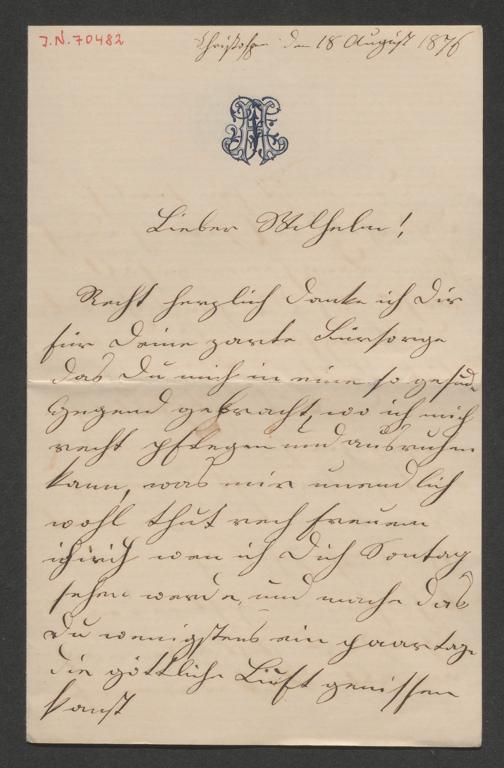 J.N. 70482
Christofen den 18 August 1876
Lieber Wilhelm!
Recht herzlich danke ich Dir
für Deine zarte Fürsorge
das Du mich in eine so gesunde
Gegend gebracht, wo ich mich
recht pflegen und ausruhen
kann, was mir unendlich
wohl thut rech freuen
ich wen ich Dich Sontag
sehen werde, und mache das
Du wenigstens ein paartage
die göttliche Luft genissen
kanst